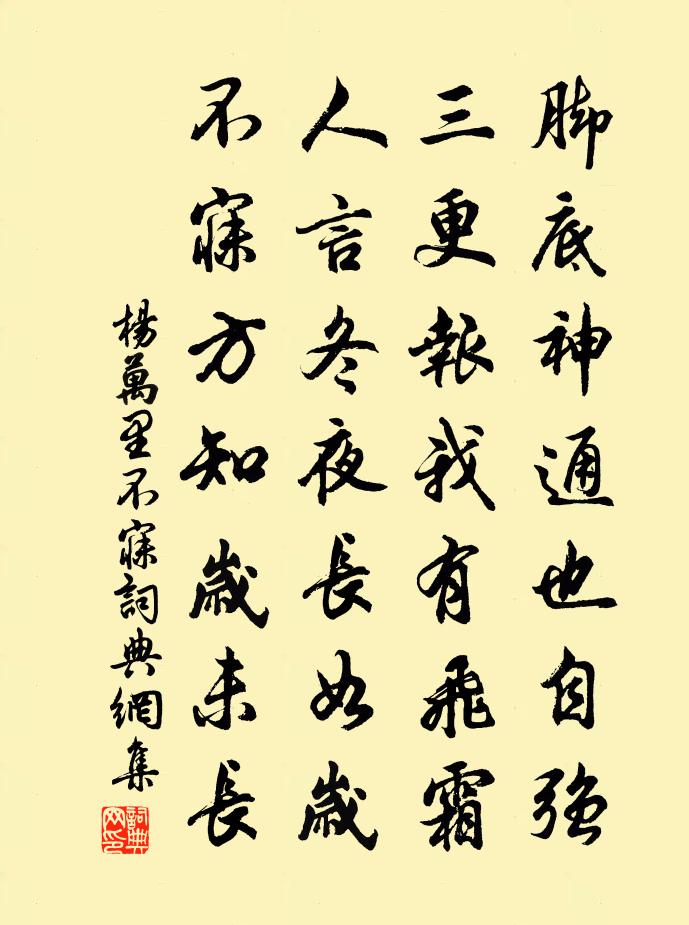 脚底神通也自強
三更報我有飛霜
人言冬夜長如歲
不寐方知歲未長
楊萬里不寐詞典網集
詞典網印